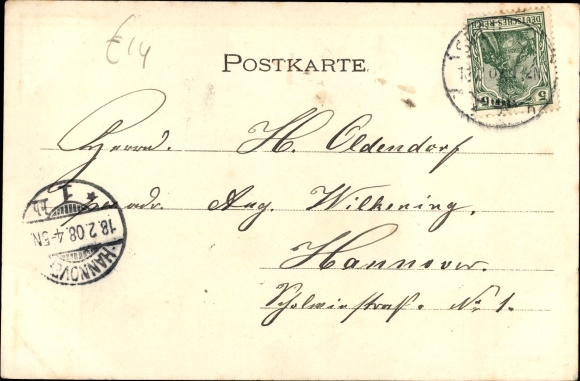 €14
POSTKARTE
DEUTSCHES REICH
5 5
Herrn. H. Oldendorf
adr. Aug. Wilkening.
Hannover.
Scholvinstraß. No 1.
HANNOVER
18.2.08.4-5N
* 1